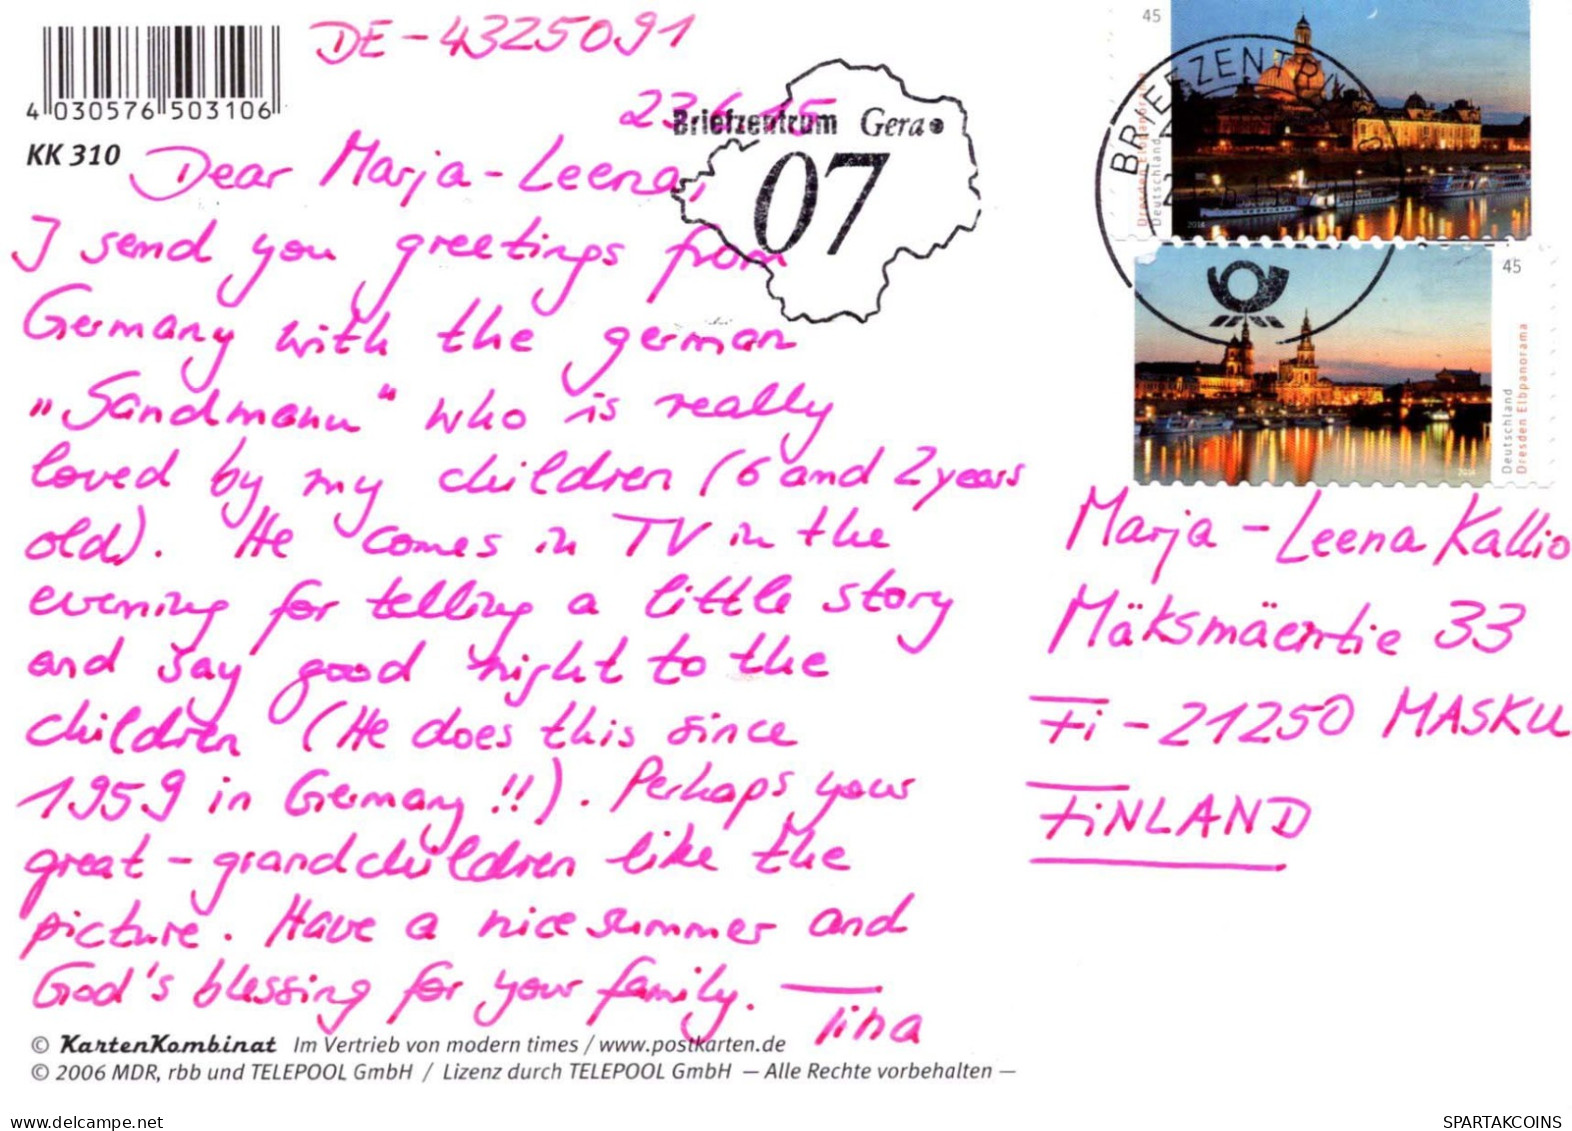 DE-4325091
4 030576 503106
23.6.15
Briefzentrum Gera
07
KK 310
Dear Marja-Leena,
I send you greetings from
Germany with the german
„Sandmann“ who is really
loved by my children (6 and 2 years
old). He comes in TV in the
evening for telling a little story
and say good night to the
children (He does this since
1959 in Germany !!). Perhaps your
great-grandchildren like the
picture. Have a nice summer and
God's blessing for your family. — Tina
© KartenKombinat Im Vertrieb von modern times / www.postkarten.de
© 2006 MDR, rbb und TELEPOOL GmbH / Lizenz durch TELEPOOL GmbH — Alle Rechte vorbehalten —
45
Dresden Elbpanorama
Deutschland
2014
BRIEFZENTRUM
45
Deutschland
Dresden Elbpanorama
2014
Marja-Leena Kallio
Mäksmäentie 33
Fi-21250 MASKU
FiNLAND
www.delcampe.net
SPARTAKCOINS